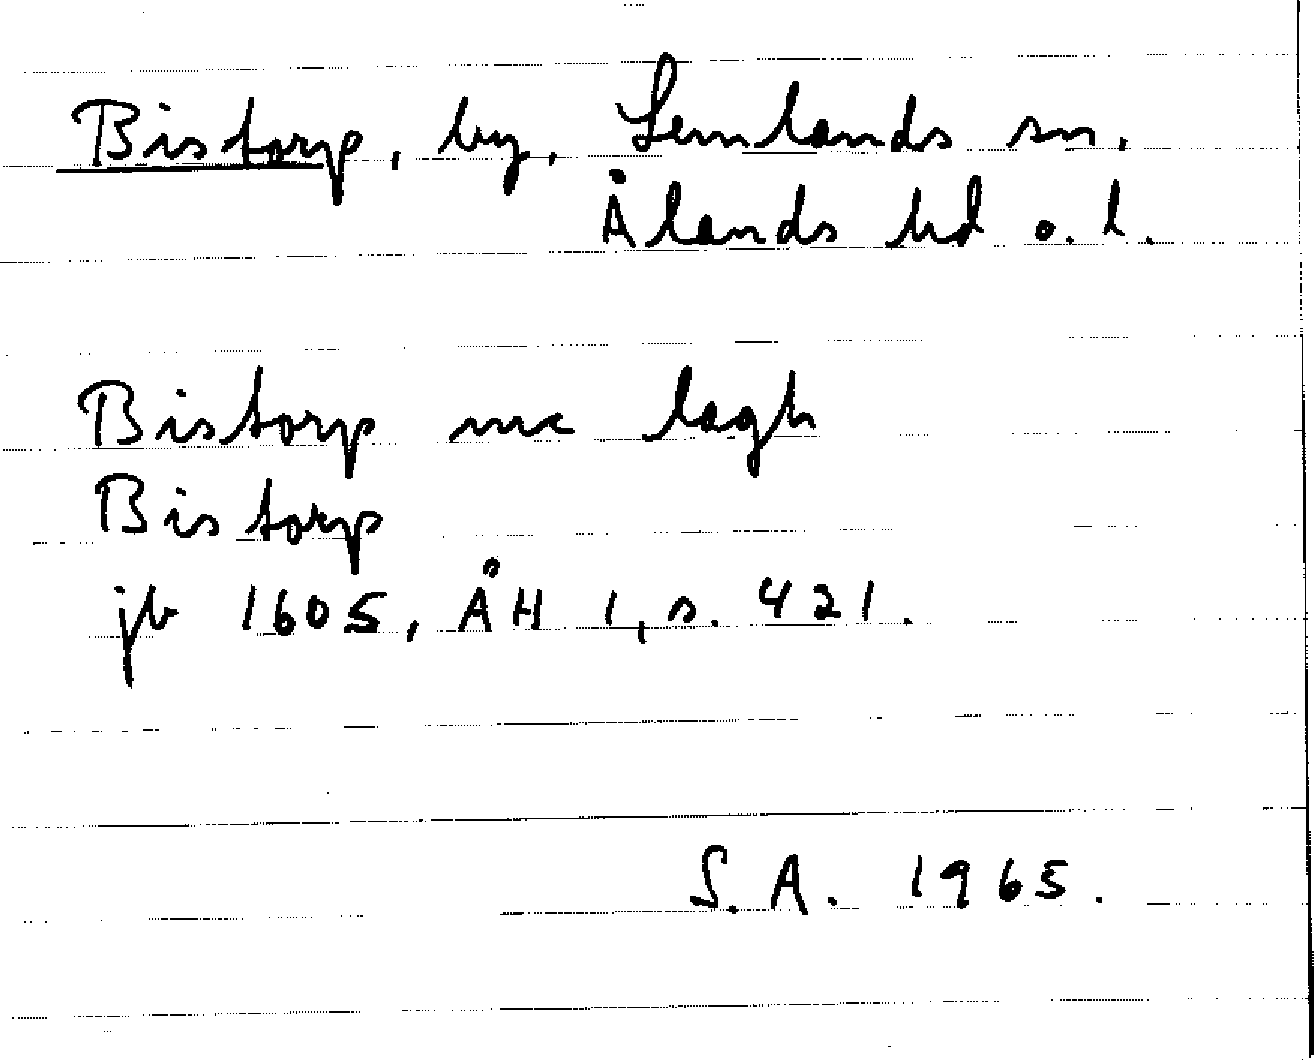 Bistorp, by, Lemlands sn,
Ålands hd o. l.
Bistorp mc lagh
Bistorp
jb 1605, ÅH 1, s. 421.
S.A. 1965.